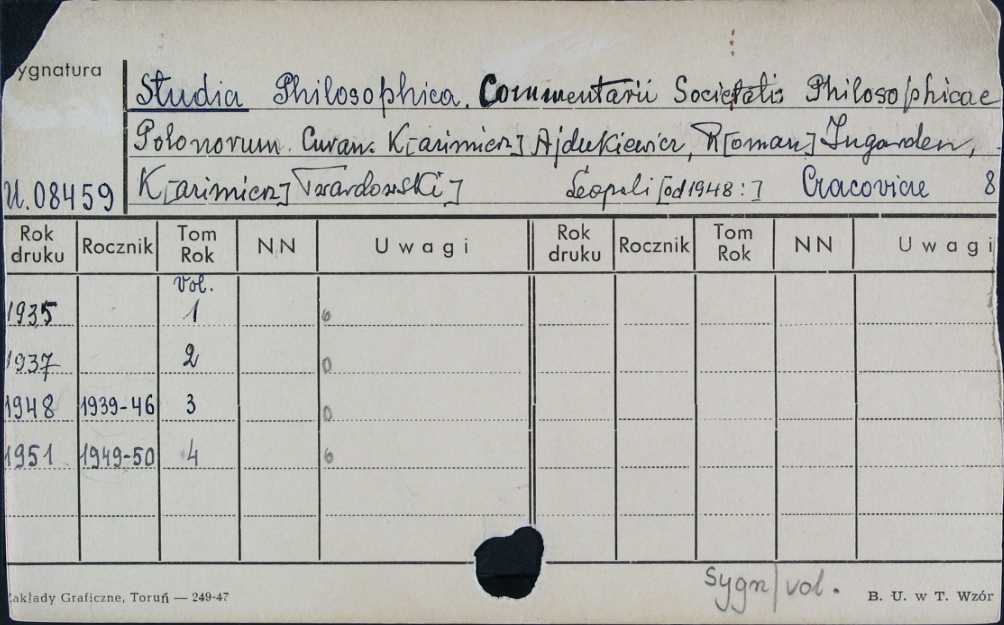 ygnatura
Studia Philosophica. Commentarii Societatis Philosophicae
Polonorum. Curan. K[azimierz] Ajdukiewicz, R[oman] Ingarden,
U.08459 K[azimierz] Twardowski] Leopoli [od 1948:] Cracoviae 8
Rok druku Rocznik Tom Rok NN Uwagi Rok druku Rocznik Tom Rok NN Uwagi
vol.
1935 1 6
1937 2 0
1948 1939-46 3 0
1951 1949-50 4 6
Sygn/vol.
Zakłady Graficzne, Toruń — 249-47 B. U. w T. Wzór